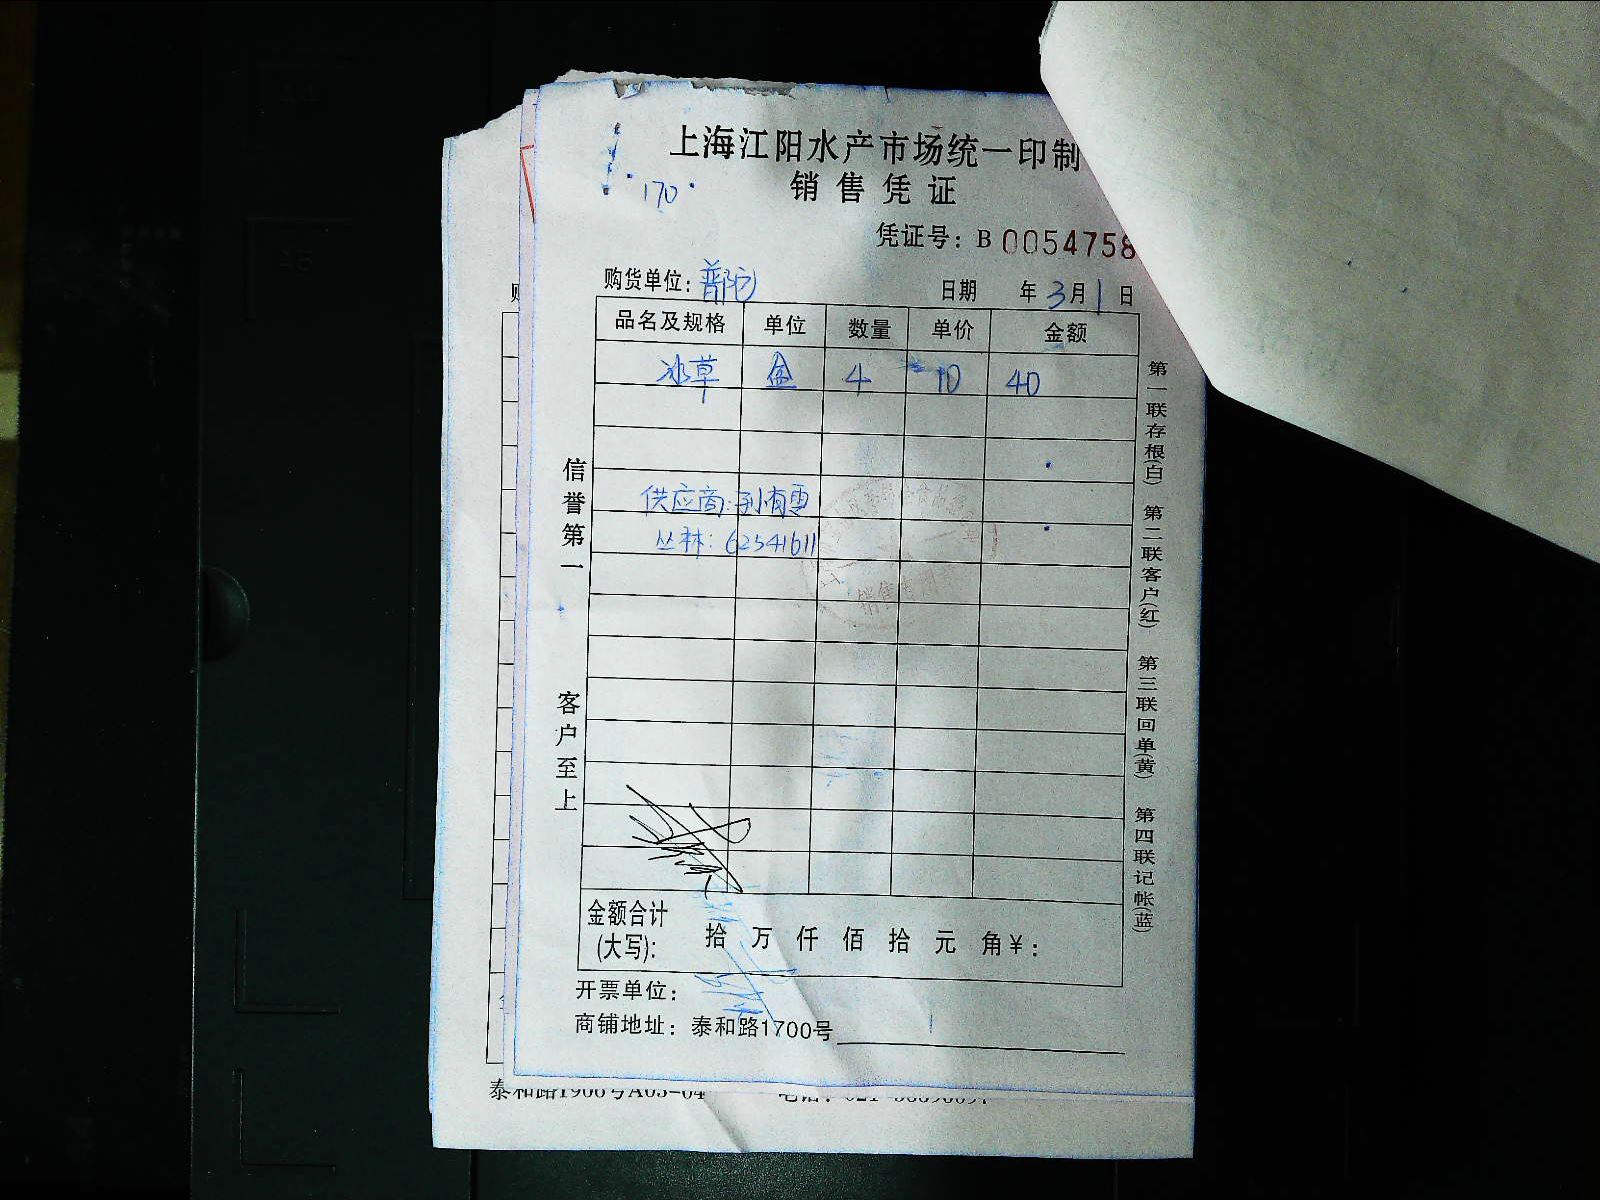 上海江阳水产市场统一印制
170
销售凭证
凭证号：B 0054758
购货单位：普陀
日期 年 3月 1日
品名及规格 单位 数量 单价 金额
冰草 盒 4 10 40
供应商：孙有雷
丛林：62541611
销售专用
信誉第一
客户至上
第一联存根(白) 第二联客户(红) 第三联回单(黄) 第四联记帐(蓝)
金额合计
(大写)： 拾 万 仟 佰 拾 元 角 ¥：
开票单位：
商铺地址：泰和路1700号